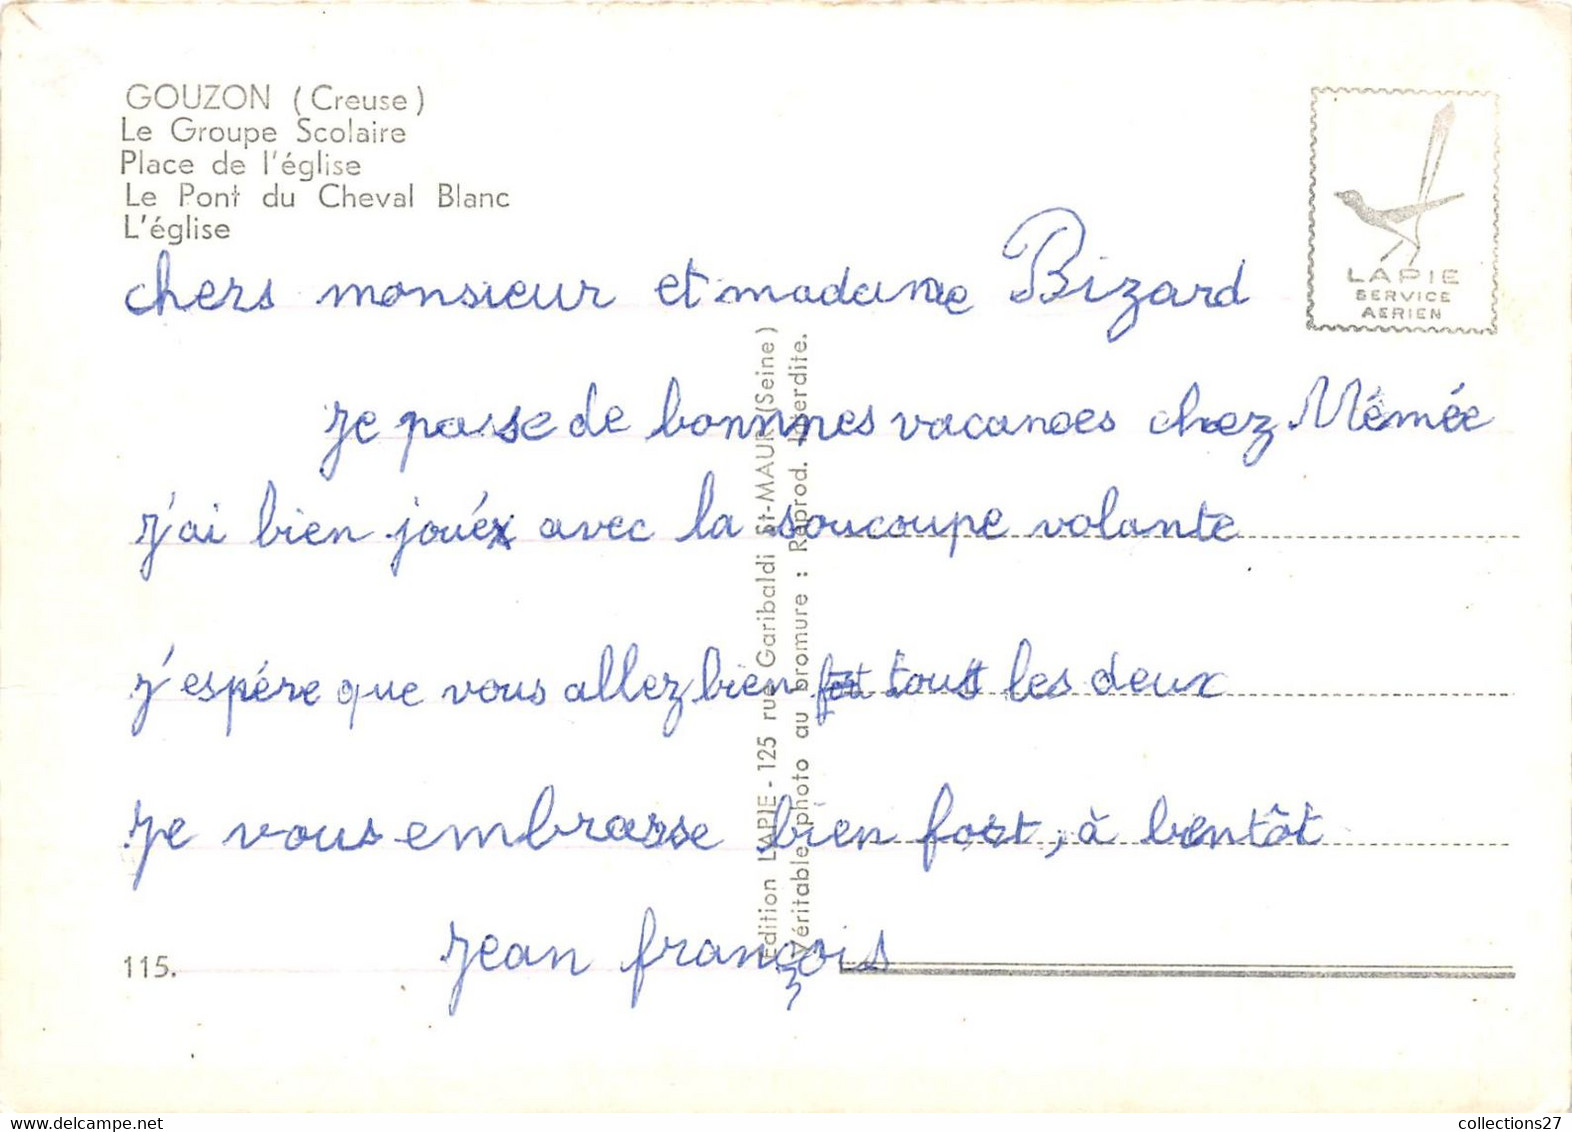 GOUZON (Creuse)
Le Groupe Scolaire
Place de l'église
Le Pont du Cheval Blanc
L'église
LAPIE
SERVICE
AERIEN
chers monsieur et madame Bizard
je passe de bonnnes vacances chez Mémée
j'ai bien joué avec la soucoupe volante
j'espére que vous allez bien tous les deux
je vous embrasse bien fort, à bentôt
jean françois
115.
Edition LAPIE - 125 rue Garibaldi St-MAUR (Seine)
Véritable photo au bromure : Reprod. Interdite.
collections27